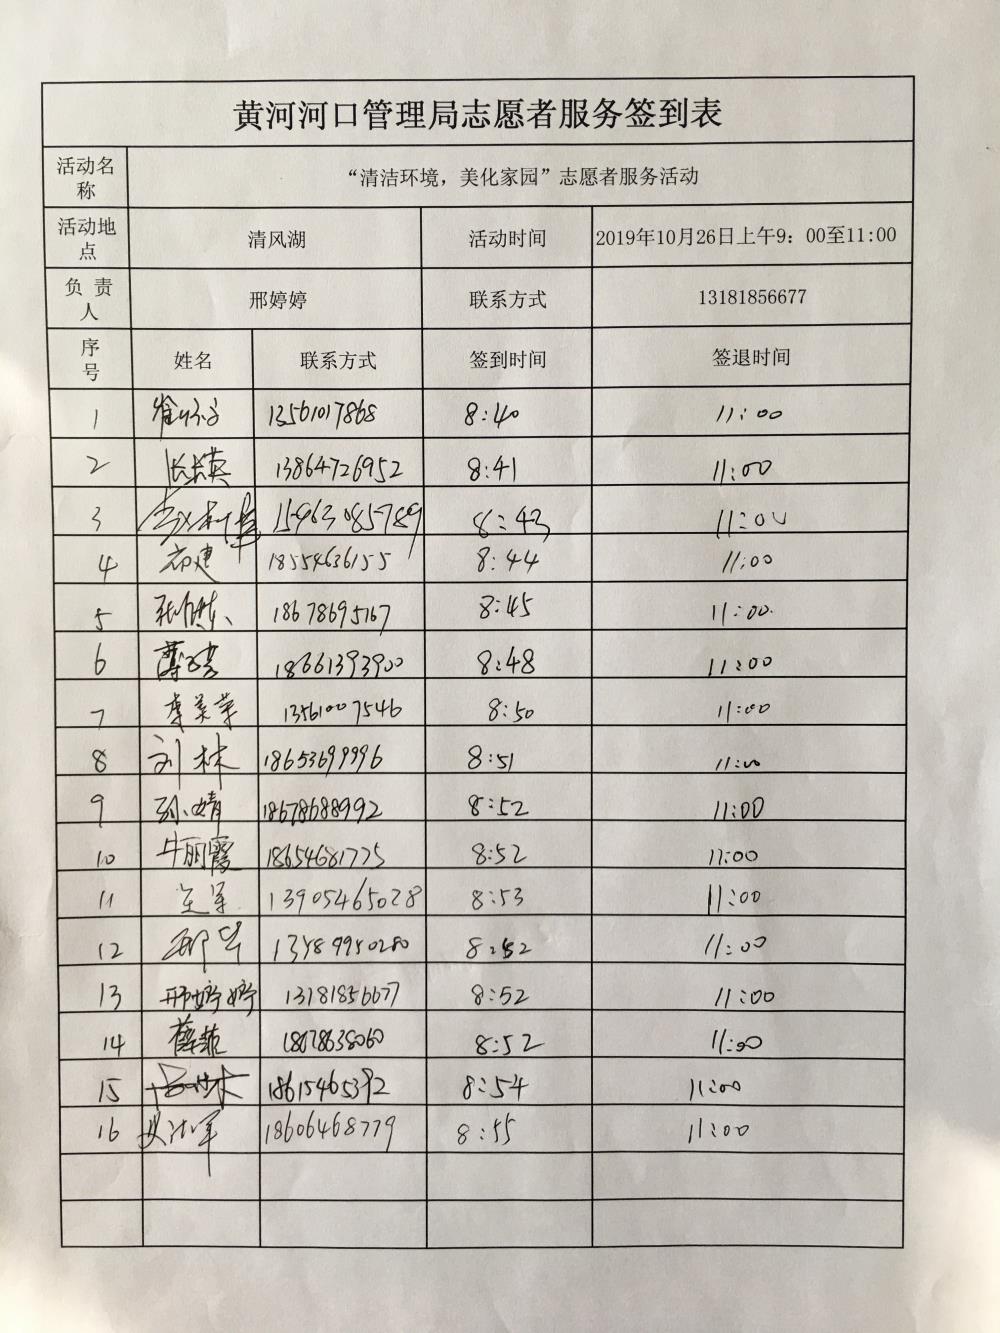 黄河河口管理局志愿者服务签到表
活动名称 “清洁环境，美化家园”志愿者服务活动
活动地点 清风湖 活动时间 2019年10月26日上午9：00至11:00
负责人 邢婷婷 联系方式 13181856677
序号 姓名 联系方式 签到时间 签退时间
1 13561017868 8:40 11:00
2 13864726952 8:41 11:00
3 15963085789 8:43 11:00
4 18554636155 8:44 11:00
5 18678695167 8:45 11:00
6 18661393900 8:48 11:00
7 李美荣 13561007546 8:50 11:00
8 刘林 18653699996 8:51 11:00
9 孙婧 18678688992 8:52 11:00
10 牛丽霞 18654681775 8:52 11:00
11 13905465028 8:53 11:00
12 13489950280 8:52 11:00
13 邢婷婷 13181856677 8:52 11:00
14 薛菲 18678638060 8:52 11:00
15 18615465392 8:54 11:00
16 18606468779 8:55 11:00